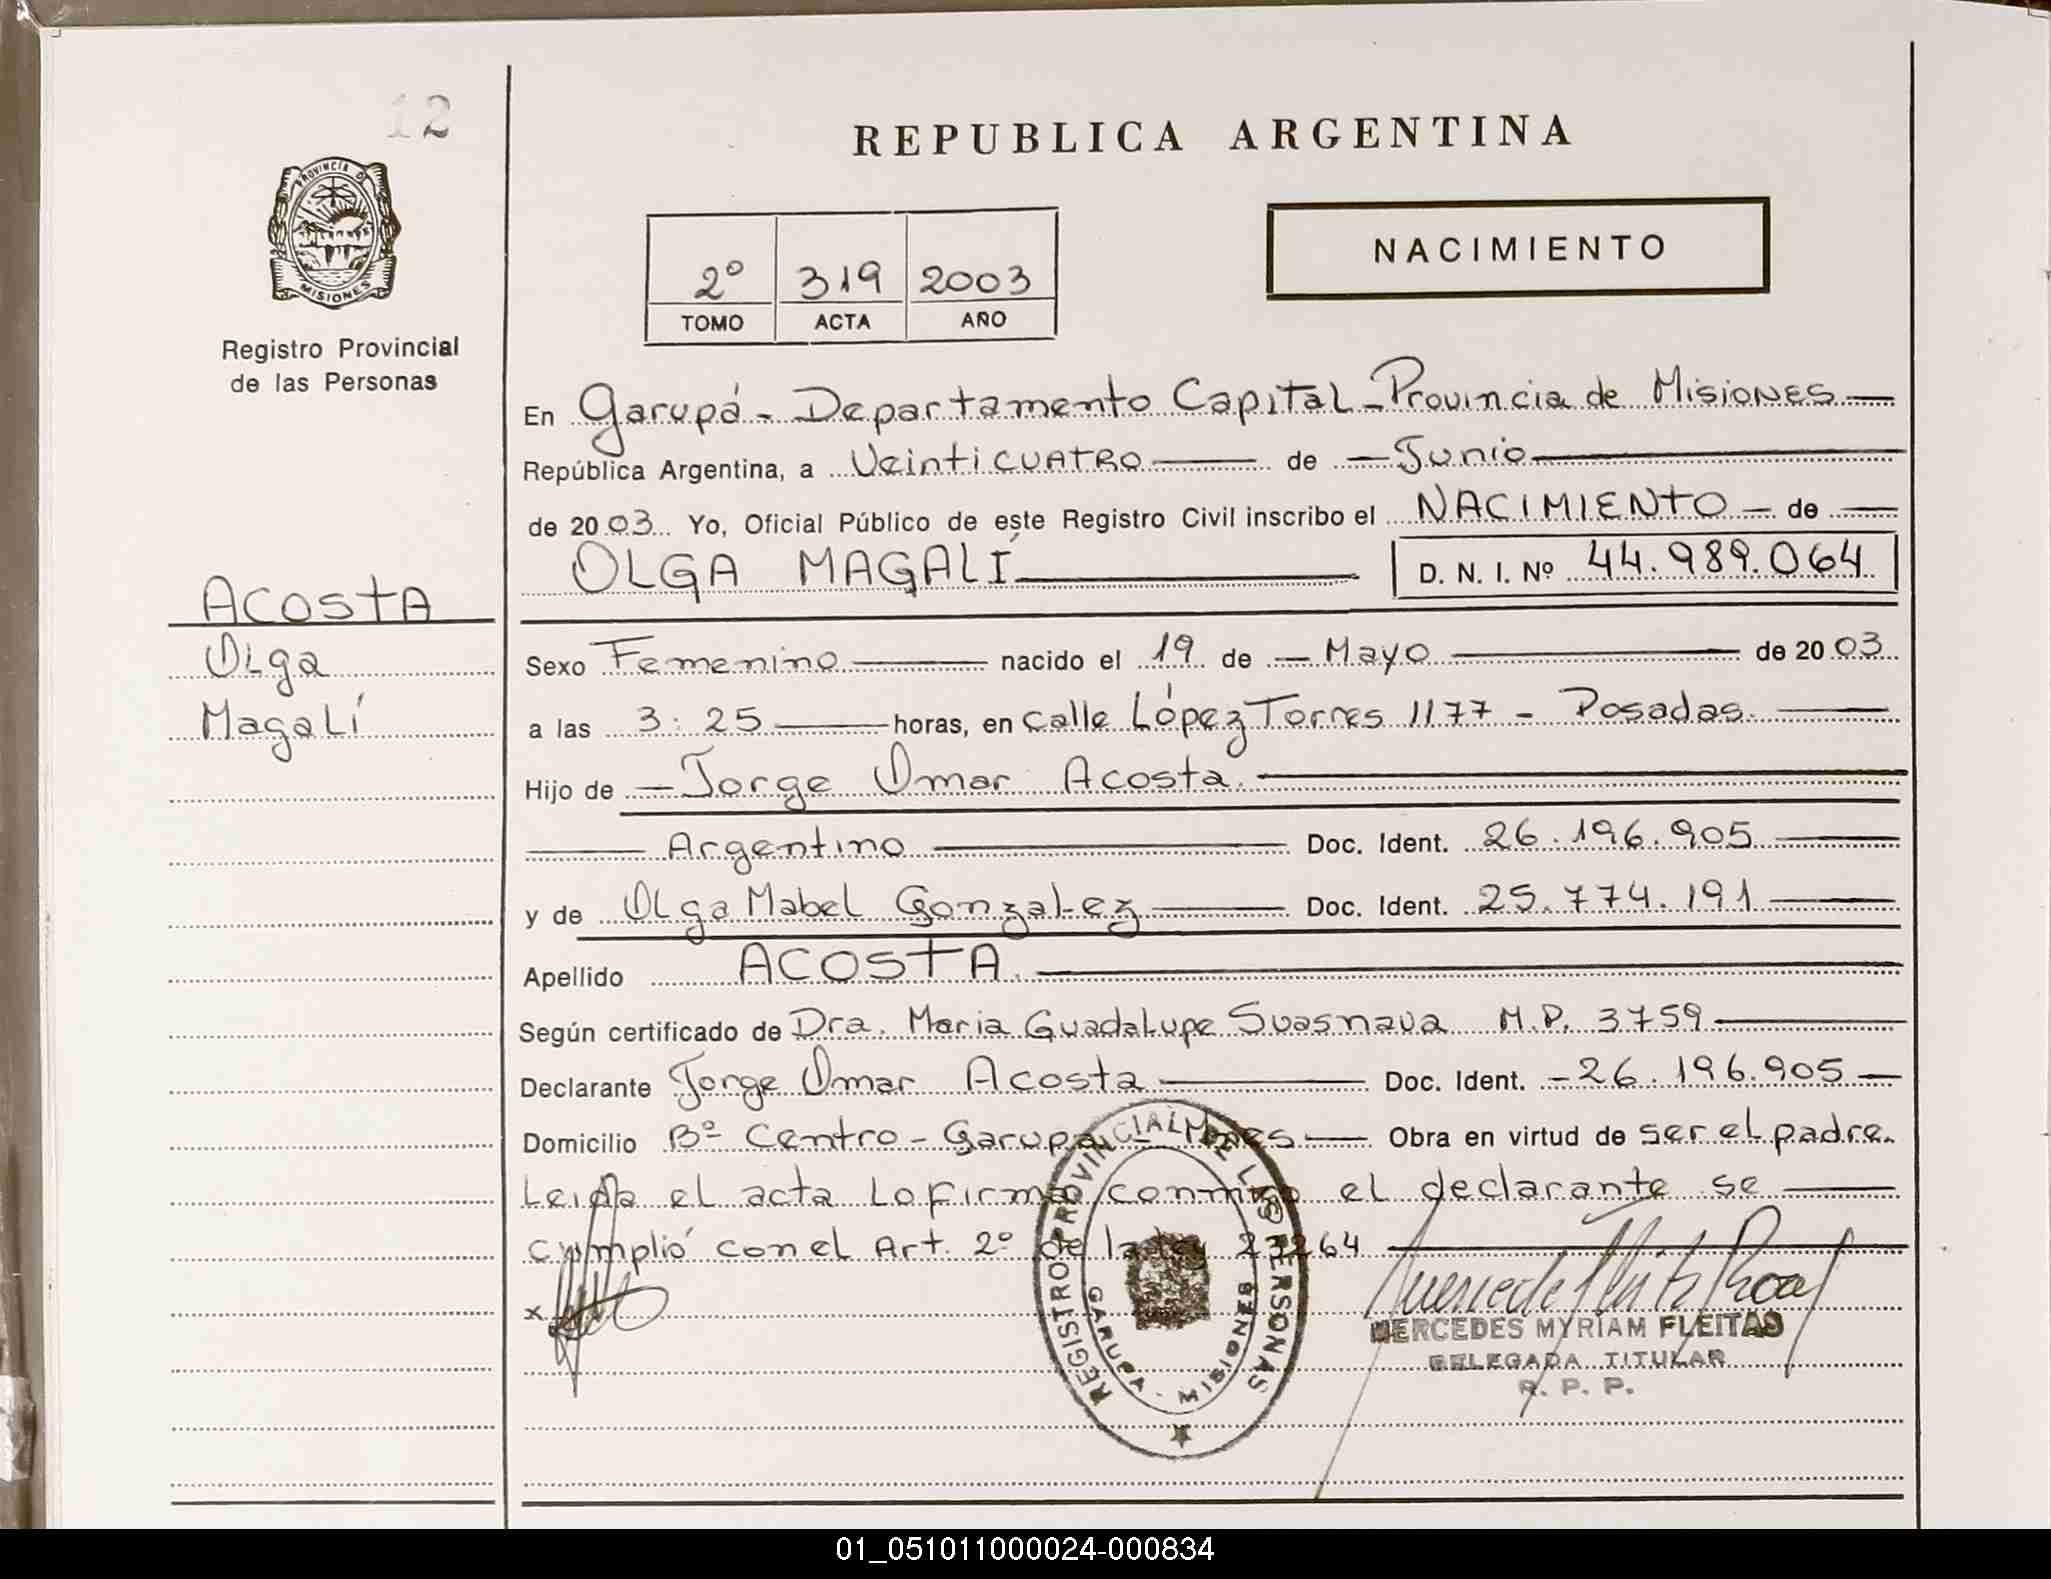 12
PROVINCIA DE
MISIONES
Registro Provincial
de las Personas
ACOSTA
Olga
Magalí
REPUBLICA ARGENTINA
NACIMIENTO
2º 319 2003
TOMO ACTA AÑO
En Garupá - Departamento Capital - Provincia de Misiones
República Argentina, a Veinticuatro de Junio
de 2003 Yo, Oficial Público de este Registro Civil inscribo el NACIMIENTO de
OLGA MAGALÍ D. N. I. Nº 44.989.064
Sexo Femenino nacido el 19 de Mayo de 2003
a las 3:25 horas, en calle López Torres 1177 - Posadas.
Hijo de Jorge Omar Acosta.
Argentino Doc. Ident. 26.196.905
y de Olga Mabel Gonzalez Doc. Ident. 25.774.191
Apellido ACOSTA.
Según certificado de Dra. Maria Guadalupe Suasnava M.P. 3759
Declarante Jorge Omar Acosta Doc. Ident. 26.196.905
Domicilio Bº Centro - Garupá - Mnes Obra en virtud de ser el padre.
Leida el acta Lo firma conmigo el declarante se
cumplió con el Art. 2º de la ley 23264
x
REGISTRO PROVINCIAL DE LAS PERSONAS
GARUPA - MISIONES
MERCEDES MYRIAM FLEITAS
DELEGADA TITULAR
R. P. P.
01_051011000024-000834